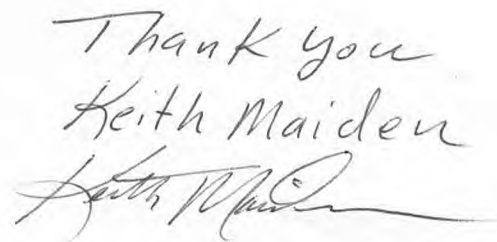 Thank you
Keith Maiden
Keith Maiden